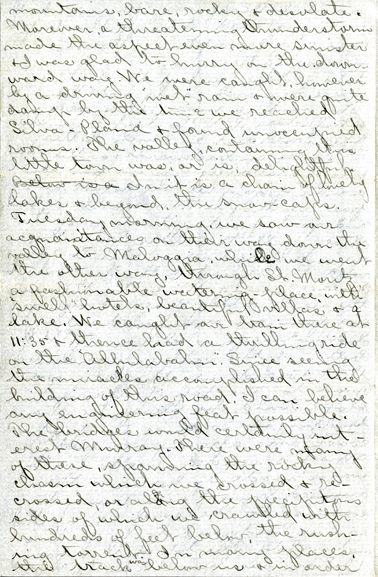 mountains, bare, rocky & desolate.
Moreover, a threatening thunderstorm
made the aspect even more sinister
& I was glad to hurry on the down-
ward way. We were caught, however
by a driving "wet" rain & were quite
damp by the time we reached
Silva-Pland & found unoccupied
rooms. The valley, containing this
little town was, or is, delightful
below is a In it is a chain of lovely
lakes & beyond, the snow caps.
Tuesday morning, we saw our
acquaintances on their way down the
valley to Maloggia, while we went
the other way, through St. Moritz
a fashionable watering-place, with
swell hotels, beautiful villas & a
lake. We caught our train there at
11:30 & thence had a thrilling ride
on the "Albulabahn". Since seeing
the miracles accomplished in the
building of this road, I can believe
any engineering feat possible.
The bridges would certainly int-
erest Murray. There were many
of these, spanning the rocky
chasm which we crossed & re-
crossed, or along the precipitous
sides of which we crawled with
hundreds of feet below, the rush-
ing torrent. In many places,
the track was below us & in order